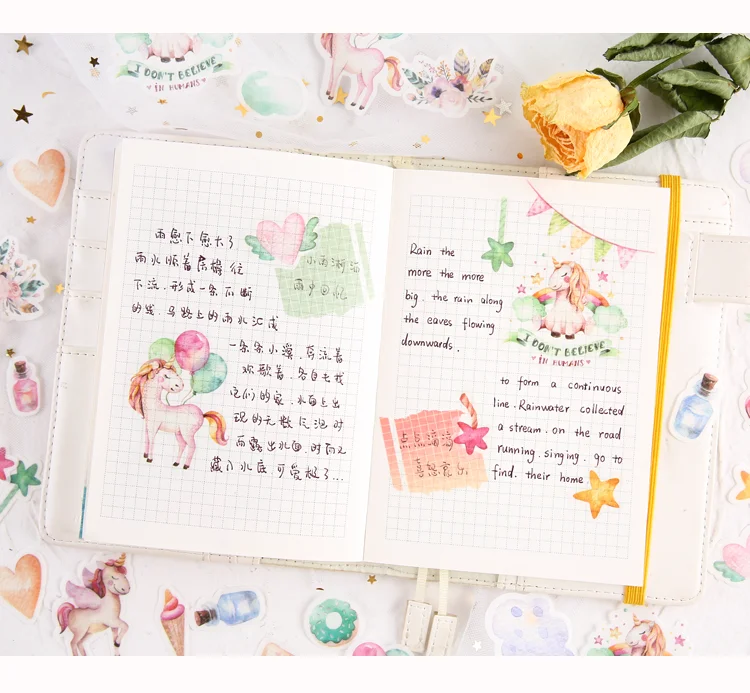 I DON'T BELIEVE
IN HUMANS
雨愈下愈大了
雨水顺着房檐往
下流,形成一条不断
的线,马路上的雨水汇成
一条条小溪,奔流着
欢歌着,各自去找
它们的家,水面上出
现的无数气泡时
而露出水面,时而又
藏入水底,可爱极了...
小雨淅沥
雨中回忆
Rain the
more the more
big. the rain along
the eaves flowing
downwards.
I DON'T BELIEVE
IN HUMANS
to form a continuous
line. Rainwater collected
a stream. on the road
running. singing. go to
find. their home
点点滴滴
喜怒哀乐